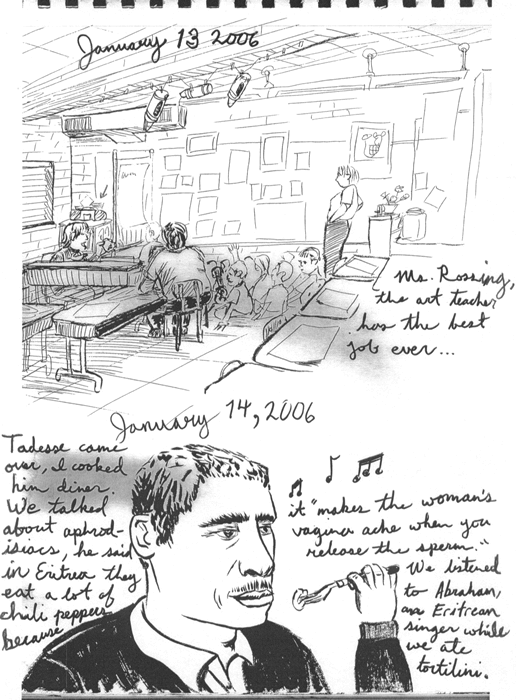 January 13 2006
Ms. Rossing,
the art teacher
has the best
job ever...
January 14, 2006
Tadesse came
over, I cooked
him diner.
We talked
about aphrod-
isiacs, he said
in Eritrea they
eat a lot of
chili peppers
because
it "makes the woman's
vagina ache when you
release the sperm."
We listened
to Abraham,
an Eritrean
singer while
we ate
tortilini.